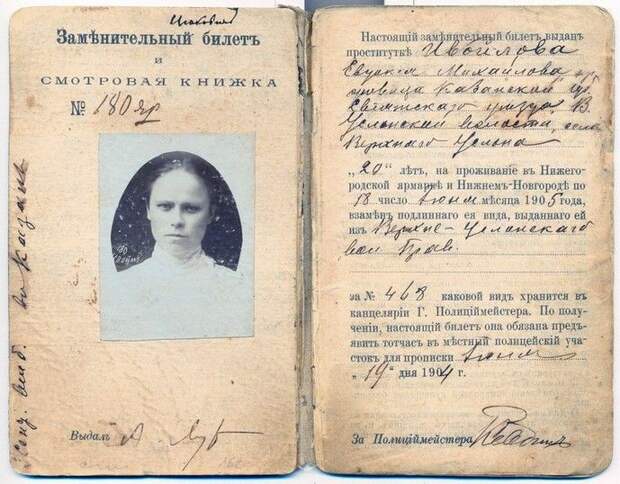 Замѣнительный билетъ
и
СМОТРОВАЯ КНИЖКА
№ 180 яр
Выдалъ
Настоящій замѣнительный билетъ выданъ
проституткѣ Ивойлова
Михайлова
Казанской губ.
уѣзда В.
Услонской волости, села
Верхняго Услона
„20“ лѣтъ, на проживаніе въ Нижего-
родской ярмаркѣ и Нижнемъ-Новгородѣ по
18 число Іюня мѣсяца 1905 года,
взамѣнъ подлиннаго ея вида, выданнаго ей
изъ Верхне-Услонскаго
вол Прав.
за № 463 каковой видъ хранится въ
канцеляріи Г. Полиціймейстера. По полу-
ченіи, настоящій билетъ она обязана предъ-
явить тотчасъ въ мѣстный полицейскій уча-
стокъ для прописки Іюня
„19“ дня 1904 г.
За Полиціймейстера